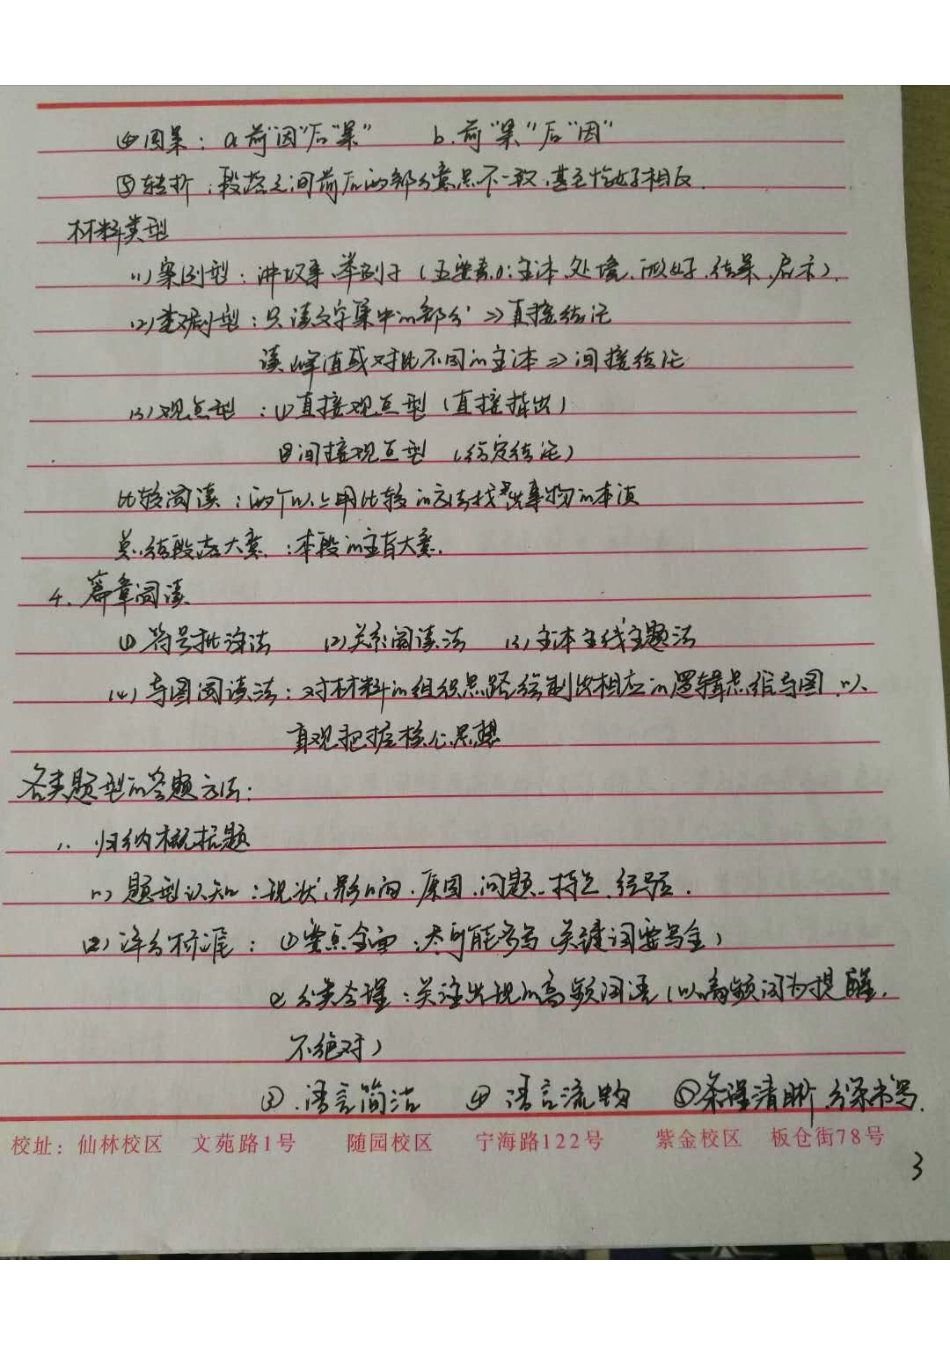 ④因果：a.前“因”后“果”  b.前“果”后“因”
⑤转折：段落之间前后的部分意思不一致,甚至恰好相反.
材料类型
(1)案例型：讲故事,举例子(五要素:主体,处境,做好,结果,启示).
(2)数据型：只读文字集中的部分⇒直接结论
读峰值或对比不同的主体⇒间接结论
(3)观点型：①直接观点型(直接提出)
②间接观点型(给定结论)
比较阅读：两个以上用比较的方法找出事物的本质
总结段落大意：本段的主旨大意.
4.篇章阅读
(1)符号批注法 (2)关系阅读法 (3)主体主线主题法
(4)导图阅读法：对材料的组织思路绘制出相应的逻辑思维导图,以
直观把握核心思想
各类题型的答题方法：
1.归纳概括题
(1)题型认知：现状,影响,原因,问题,特色,经验.
(2)评分标准：①要点全面:尽可能多写(关键词要写全)
②分类合理:关注出现的高频词语(以高频词为提醒,
不绝对)
③.语言简洁 ④语言流畅 ⑤条理清晰 分条书写.
校址：仙林校区 文苑路1号 随园校区 宁海路122号 紫金校区 板仓街78号
3